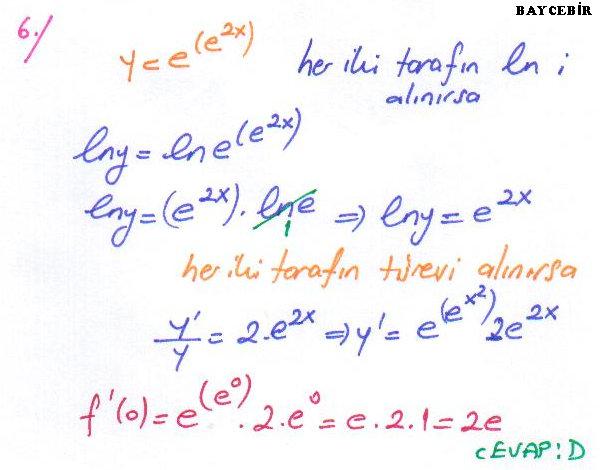 BAYCEBİR
6./
y = e^(e^2x) her iki tarafın ln i
alınırsa
lny = ln e^(e^2x)
lny = (e^2x) . lne ⇒ lny = e^2x
1
her iki tarafın türevi alınırsa
y'/y = 2.e^2x ⇒ y' = e^(e^x²) 2e^2x
f'(0) = e^(e^0) . 2.e^0 = e.2.1 = 2e
CEVAP: D